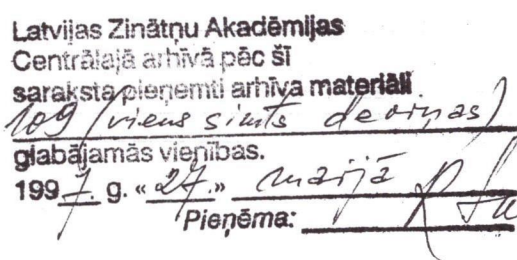 Latvijas Zinātņu Akadēmijas
Centrālajā arhīvā pēc šī
saraksta pieņemti arhīva materiāli
109 (viens simts deviņas)
glabājamās vienības.
1997. g. «27.» maijā
Pieņēma: